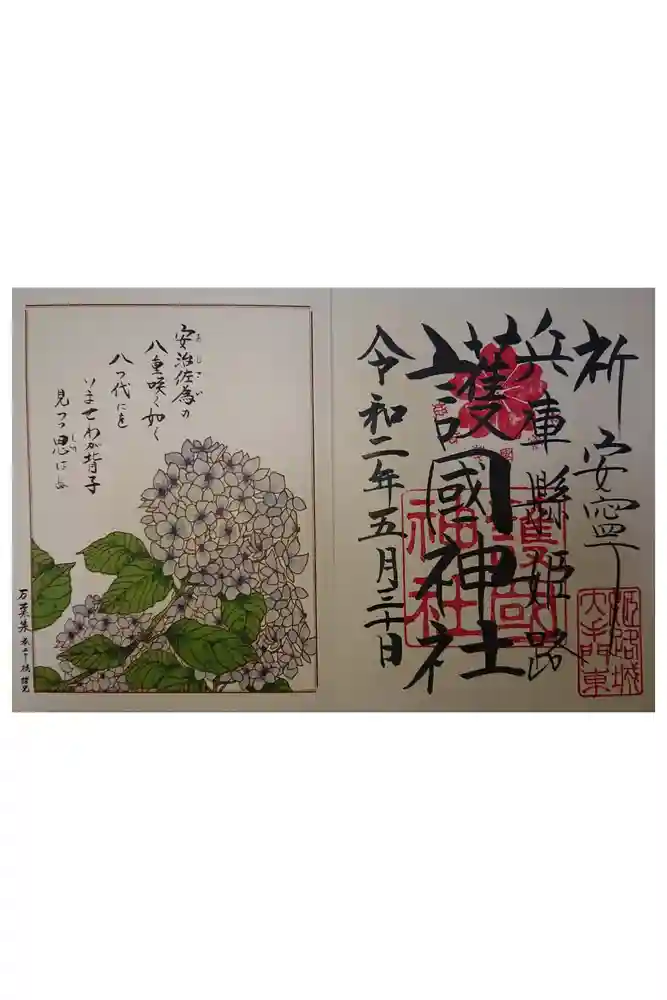 祈 安寧
兵庫縣姫路
護國神社
令和二年五月三十日
護國
神社
姫路城
安治佐為の
八重咲く如く
八つ代にを
いませわが背子
見つつ思はむ
万葉集 巻二十 橘諸兄